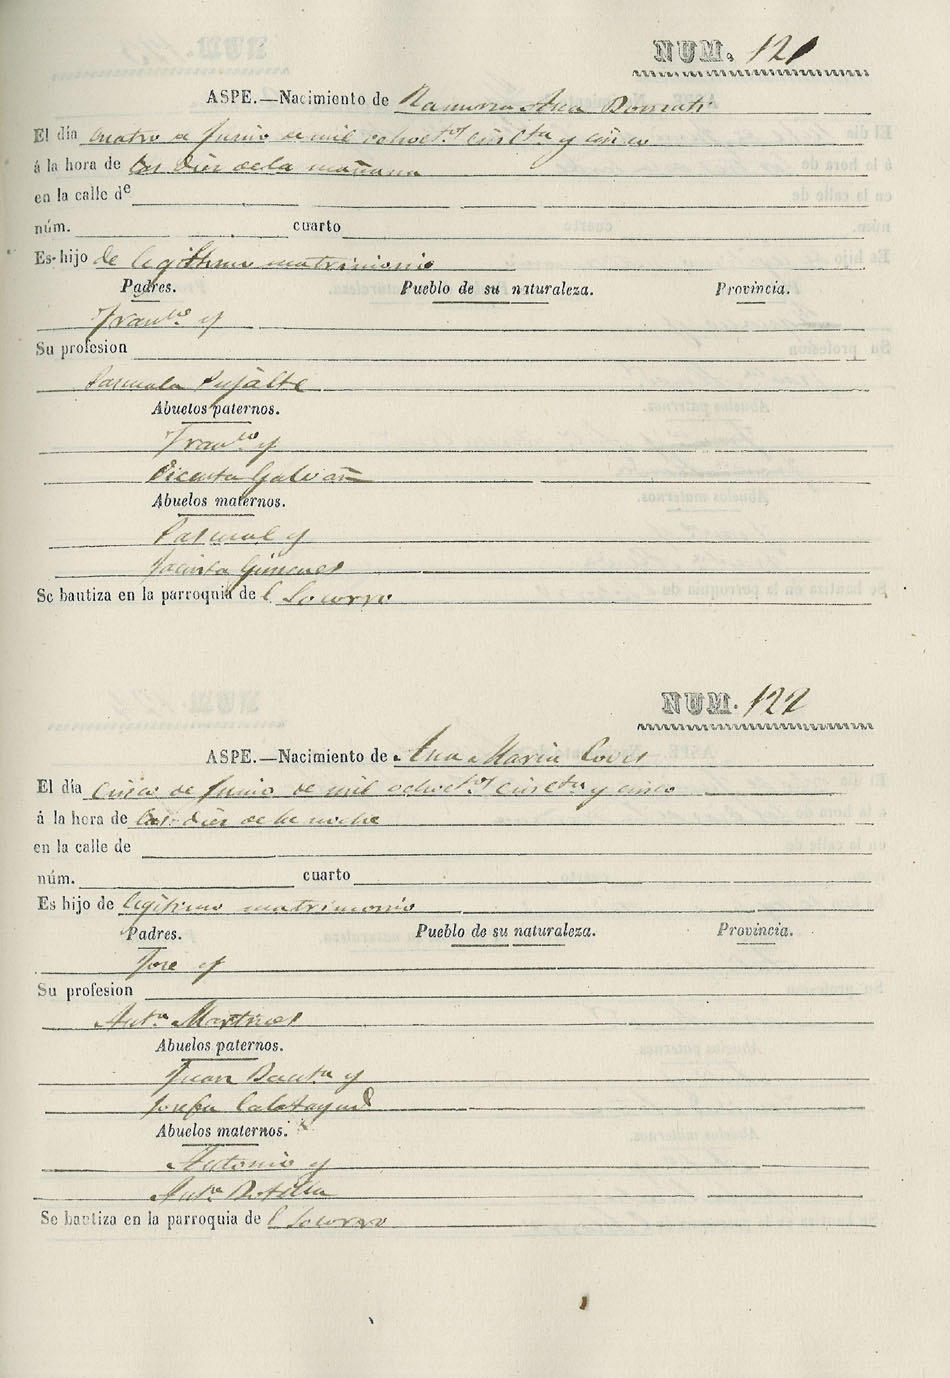 NUM. 121
ASPE.—Nacimiento de Ramona Ana Bonmati
El día cuatro de Junio de mil ochoctos cincta y cinco
á la hora de las diez de la mañana
en la calle de
núm. cuarto
Es hijo de legitimo matrimonio
Padres. Pueblo de su naturaleza. Provincia.
Franco y
Su profesion
Pascuala Pujalte
Abuelos paternos.
Franco y
Vicenta Galvañ
Abuelos maternos.
Pascual y
Jacinta Gimenes
Se bautiza en la parroquia de l Socorro
NUM. 122
ASPE.—Nacimiento de Ana Maria Coves
El día cinco de Junio de mil ochoctos cincta y cinco
á la hora de las diez de la noche
en la calle de
núm. cuarto
Es hijo de legitimo matrimonio
Padres. Pueblo de su naturaleza. Provincia.
Jose y
Su profesion
Anta Martines
Abuelos paternos.
Juan Bauta y
Josefa Calatayud
Abuelos maternos.
Antonio y
Anta Botella
Se bautiza en la parroquia de l Socorro